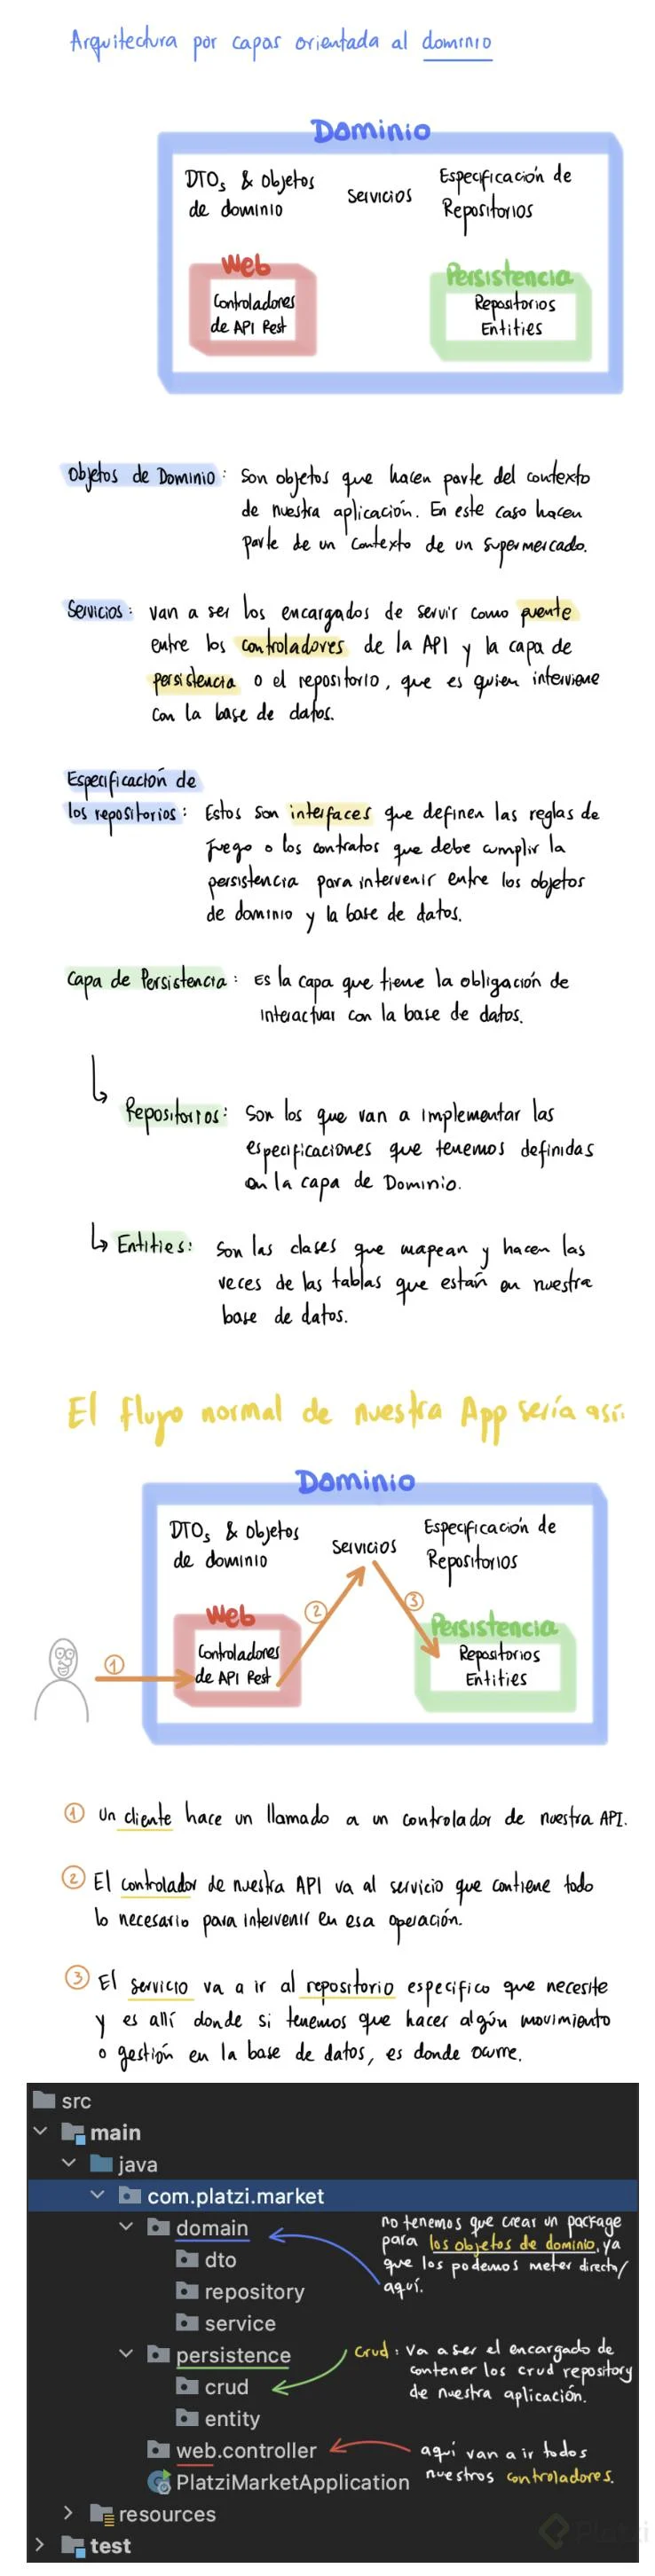 Arquitectura por capas orientada al dominio
Dominio
DTOs & Objetos
de dominio
Servicios
Especificación de
Repositorios
Web
Controladores
de API Rest
Persistencia
Repositorios
Entities
Objetos de Dominio: Son objetos que hacen parte del contexto
de nuestra aplicación. En este caso hacen
parte de un contexto de un supermercado.
Servicios: van a ser los encargados de servir como puente
entre los controladores de la API y la capa de
persistencia o el repositorio, que es quien interviene
con la base de datos.
Especificación de
los repositorios: Estos son interfaces que definen las reglas de
juego o los contratos que debe cumplir la
persistencia para intervenir entre los objetos
de dominio y la base de datos.
Capa de Persistencia: Es la capa que tiene la obligación de
interactuar con la base de datos.
Repositorios: Son los que van a implementar las
especificaciones que tenemos definidas
en la capa de Dominio.
Entities: Son las clases que mapean y hacen las
veces de las tablas que están en nuestra
base de datos.
El flujo normal de nuestra App sería así:
Dominio
DTOs & Objetos
de dominio
Servicios
Especificación de
Repositorios
Web
Controladores
de API Rest
Persistencia
Repositorios
Entities
1
2
3
1 Un cliente hace un llamado a un controlador de nuestra API.
2 El controlador de nuestra API va al servicio que contiene todo
lo necesario para intervenir en esa operación.
3 El servicio va a ir al repositorio especifico que necesite
y es allí donde si tenemos que hacer algún movimiento
o gestión en la base de datos, es donde ocurre.
src
main
java
com.platzi.market
domain
dto
repository
service
no tenemos que crear un package
para los objetos de dominio, ya
que los podemos meter direct/
aquí.
persistence
crud
entity
crud: Va a ser el encargado de
contener los crud repository
de nuestra aplicación.
web.controller
aquí van a ir todos
nuestros controladores.
PlatziMarketApplication
resources
test
Platzi